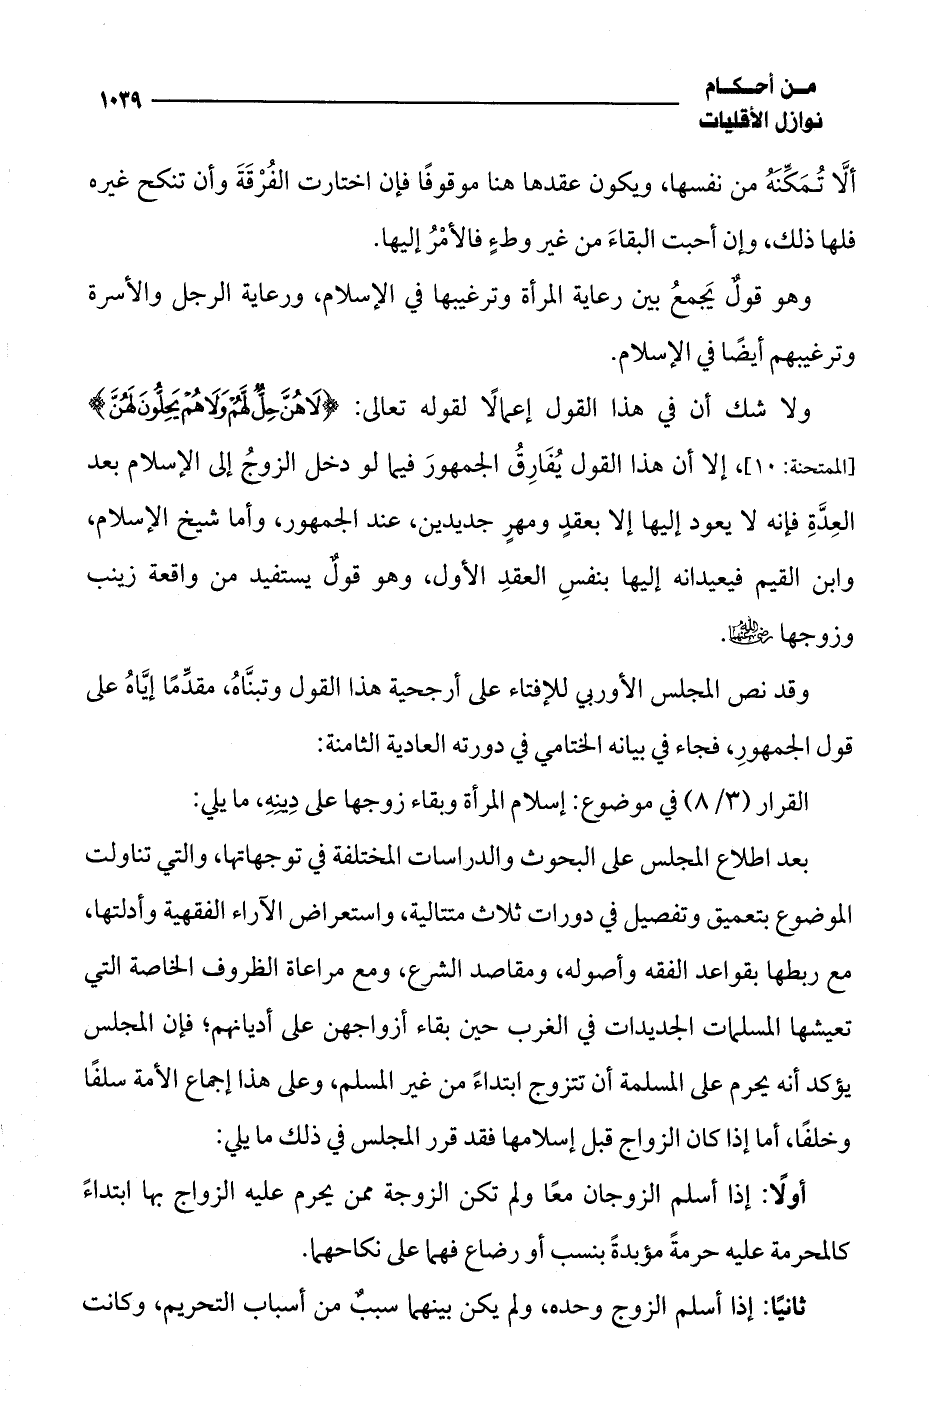 من أحكام
نوازل الأقليات
١٠٣٩
ألَّا تُمَكِّنَهُ من نفسها، ويكون عقدها هنا موقوفًا فإن اختارت الفُرْقَةَ وأن تنكح غيره
فلها ذلك، وإن أحبت البقاءَ من غير وطءٍ فالأمْرُ إليها.
وهو قولٌ يَجمعُ بين رعاية المرأة وترغيبها في الإسلام، ورعاية الرجل والأسرة
وترغيبهم أيضًا في الإسلام.
ولا شك أن في هذا القول إعمالًا لقوله تعالى: ﴿لَا هُنَّ حِلٌّ لَّهُمْ وَلَا هُمْ يَحِلُّونَ لَهُنَّ﴾
[الممتحنة: ١٠]، إلا أن هذا القول يُفَارِقُ الجمهورَ فيما لو دخل الزوجُ إلى الإسلام بعد
العِدَّةِ فإنه لا يعود إليها إلا بعقدٍ ومهرٍ جديدين، عند الجمهور، وأما شيخ الإسلام،
وابن القيم فيعيدانه إليها بنفسِ العقدِ الأول، وهو قولٌ يستفيد من واقعة زينب
وزوجها رضي الله عنهما.
وقد نص المجلس الأوربي للإفتاء على أرجحية هذا القول وتبنَّاهُ، مقدِّمًا إيَّاهُ على
قول الجمهورِ، فجاء في بيانه الختامي في دورته العادية الثامنة:
القرار (٣/ ٨) في موضوع: إسلام المرأة وبقاء زوجها على دِينِهِ، ما يلي:
بعد اطلاع المجلس على البحوث والدراسات المختلفة في توجهاتها، والتي تناولت
الموضوع بتعميق وتفصيل في دورات ثلاث متتالية، واستعراض الآراء الفقهية وأدلتها،
مع ربطها بقواعد الفقه وأصوله، ومقاصد الشرع، ومع مراعاة الظروف الخاصة التي
تعيشها المسلمات الجديدات في الغرب حين بقاء أزواجهن على أديانهم؛ فإن المجلس
يؤكد أنه يحرم على المسلمة أن تتزوج ابتداءً من غير المسلم، وعلى هذا إجماع الأمة سلفًا
وخلفًا، أما إذا كان الزواج قبل إسلامها فقد قرر المجلس في ذلك ما يلي:
أولًا: إذا أسلم الزوجان معًا ولم تكن الزوجة ممن يحرم عليه الزواج بها ابتداءً
كالمحرمة عليه حرمةً مؤبدةً بنسب أو رضاع فهما على نكاحهما.
ثانيًا: إذا أسلم الزوج وحده، ولم يكن بينهما سببٌ من أسباب التحريم، وكانت